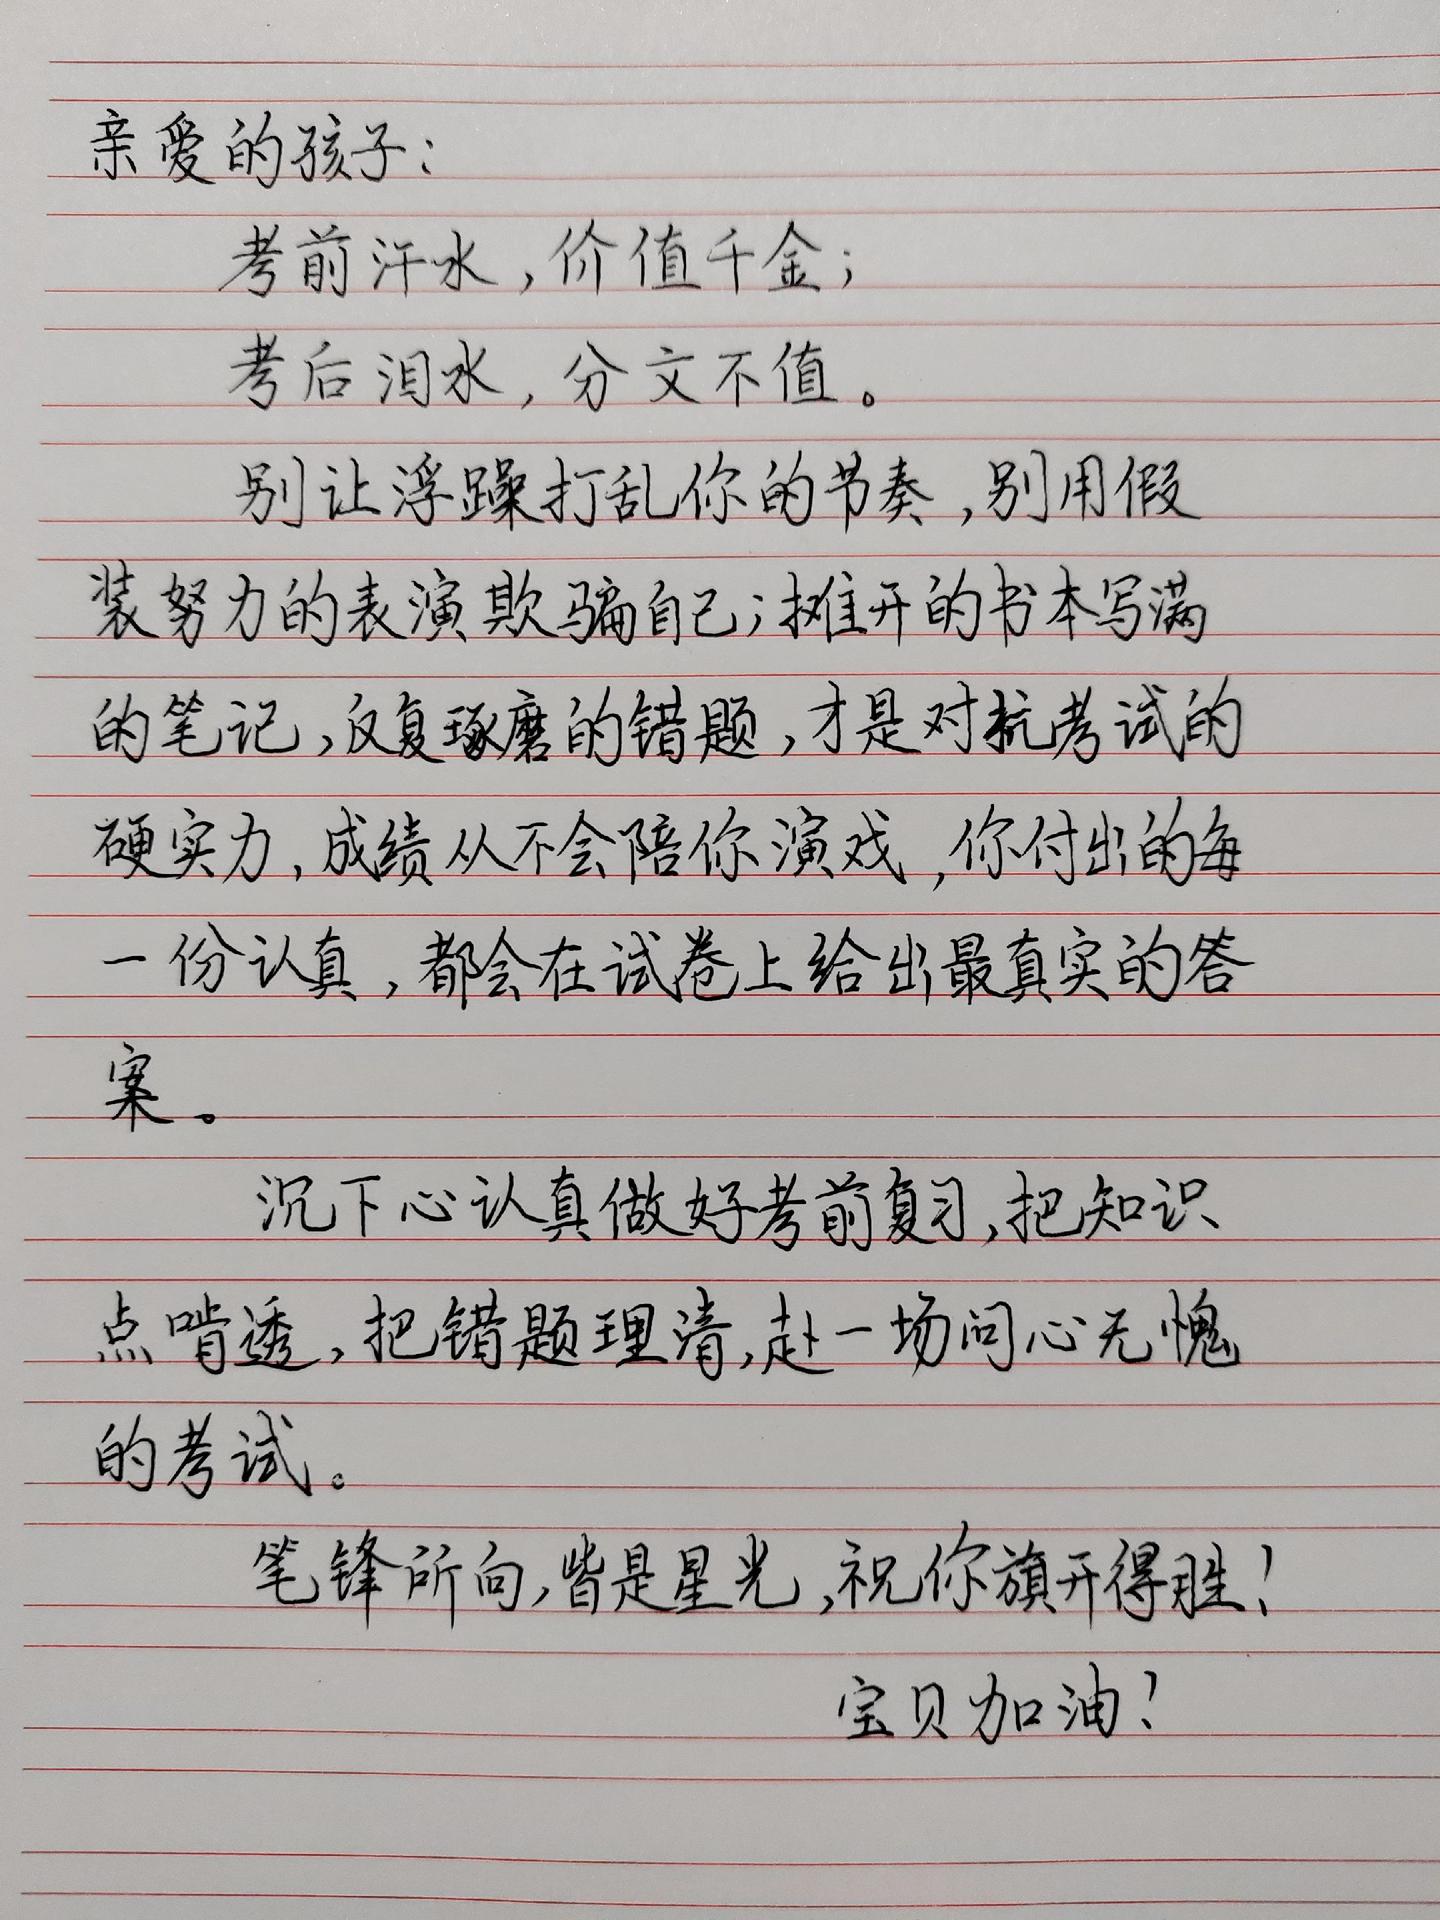 亲爱的孩子:
考前汗水,价值千金;
考后泪水,分文不值。
别让浮躁打乱你的节奏,别用假
装努力的表演欺骗自己;摊开的书本写满
的笔记,反复琢磨的错题,才是对抗考试的
硬实力,成绩从不会陪你演戏,你付出的每
一份认真,都会在试卷上给出最真实的答
案。
沉下心认真做好考前复习,把知识
点啃透,把错题理清,赴一场问心无愧
的考试。
笔锋所向,皆是星光,祝你旗开得胜!
宝贝加油!